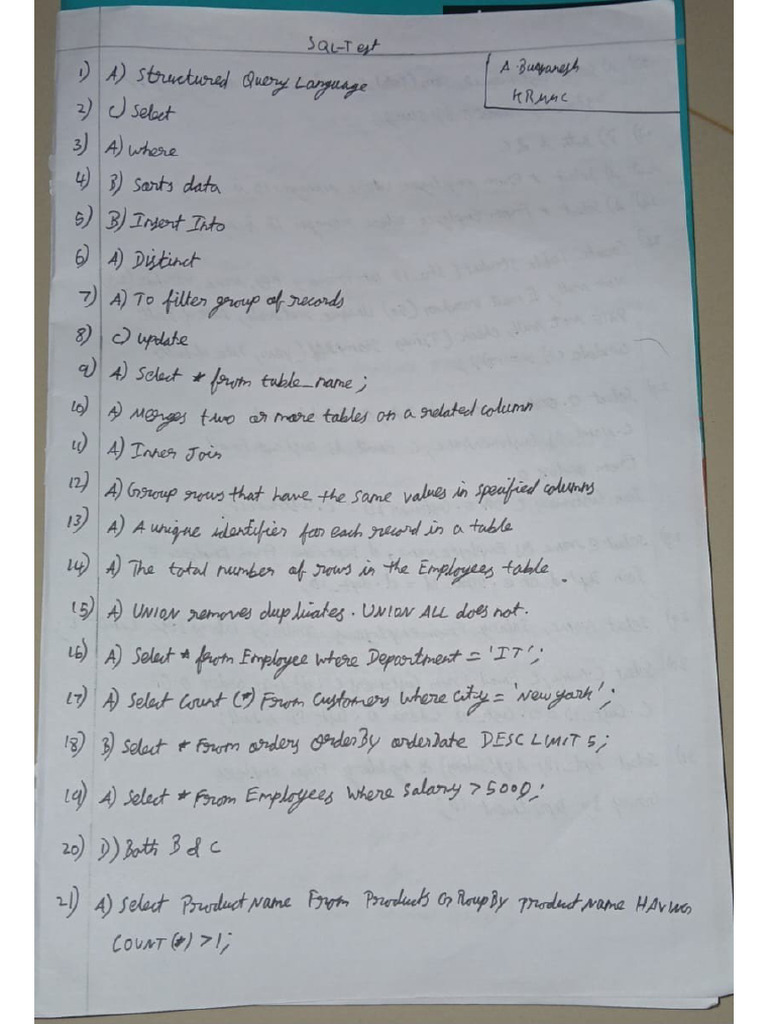 SQL-Test
A. Buvanesh
KRMMC
1) A) Structured Query Language
2) C) Select
3) A) where
4) B) Sorts data
5) B) Insert Into
6) A) Distinct
7) A) To filter group of records
8) C) update
9) A) Select * from table_name;
10) A) Merges two or more tables on a related column
11) A) Inner Join
12) A) Group rows that have the same values in specified columns
13) A) A unique identifier for each record in a table
14) A) The total number of rows in the Employees table.
15) A) UNION removes duplicates. UNION ALL does not.
16) A) Select * from Employee where Department = 'IT';
17) A) Select Count (*) From Customers where city = 'New york';
18) B) Select * From orders orderBy orderDate DESC LIMIT 5;
19) A) Select * From Employees Where Salary > 5000;
20) D) Both B & C
21) A) Select Product Name From Products GRoup By product Name HAVING
COUNT (*) > 1;